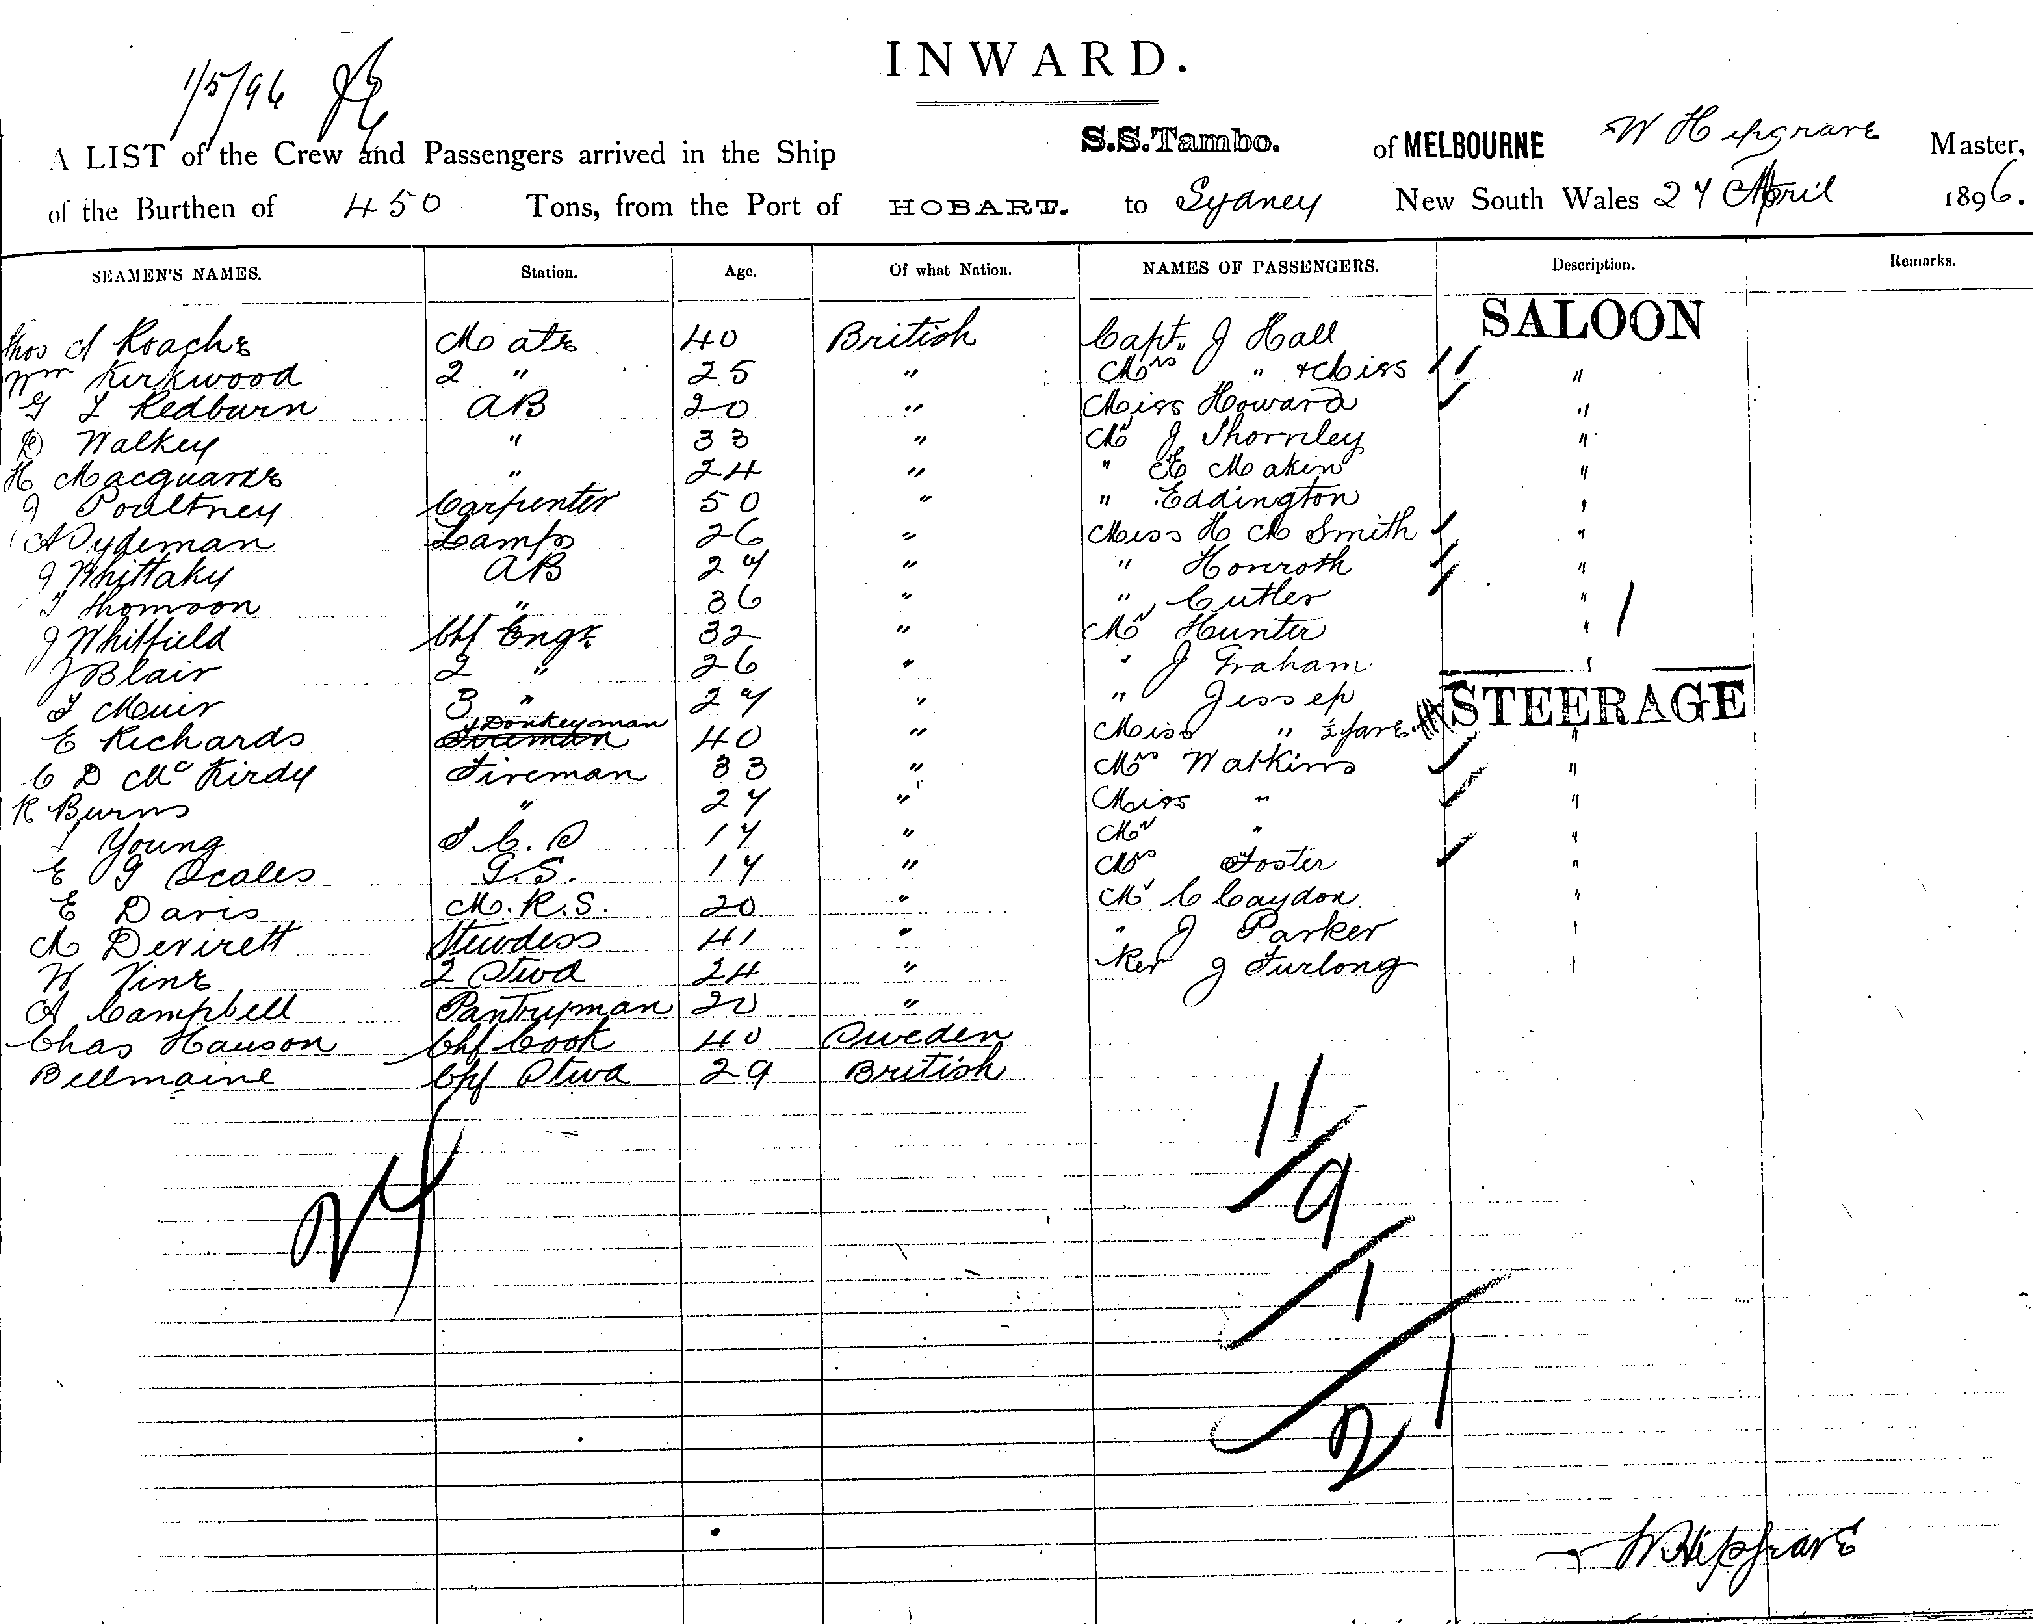 INWARD.
1/5/96
A LIST of the Crew and Passengers arrived in the Ship S.S. Tambo. of MELBOURNE W Hipgrave Master,
of the Burthen of 450 Tons, from the Port of HOBART. to Sydney New South Wales 27 April 1896.
SEAMEN'S NAMES. Station. Age. Of what Nation. NAMES OF PASSENGERS. Description. Remarks.
Thos A Roache Mate 40 British Capt. J Hall SALOON
Wm Kirkwood 2 " 25 " Mrs " + Miss "
G L Redburn AB 20 " Miss Howard "
D Walkey " 33 " Mr J Thornley "
H Macquarie " 24 " " E Makin "
J Poultney Carpenter 50 " " Eddington "
A Dydeman Lamps 26 " Miss H M Smith "
J Whittaky AB 27 " " Honroth "
T Thomson " 36 " " Cutler " 1
J Whitfield Chf Engr 32 " Mr Hunter "
J Blair 2 " 26 " " J Graham "
T Muir 3 " 27 " " Jessep STEERAGE
E Richards Fireman Donkeyman 40 " Miss " "
C D Mc Kirdy Fireman 33 " Mrs Watkins "
R Burns " 27 " Miss " "
Young 17 " Mr " "
E G Scales G.S. 17 " Mrs Foster "
E Davis M.R.S. 20 " Mr C Caydon "
M Devirett Stewdess 41 " " J Parker "
W Vine 2 Stwd 24 " Rev J Furlong "
A Campbell Pantryman 20 "
Chas Hanson Chf Cook 40 Sweden
Bellmaine Chf Stwd 29 British
11
9
24
1
21
W Hipgrave